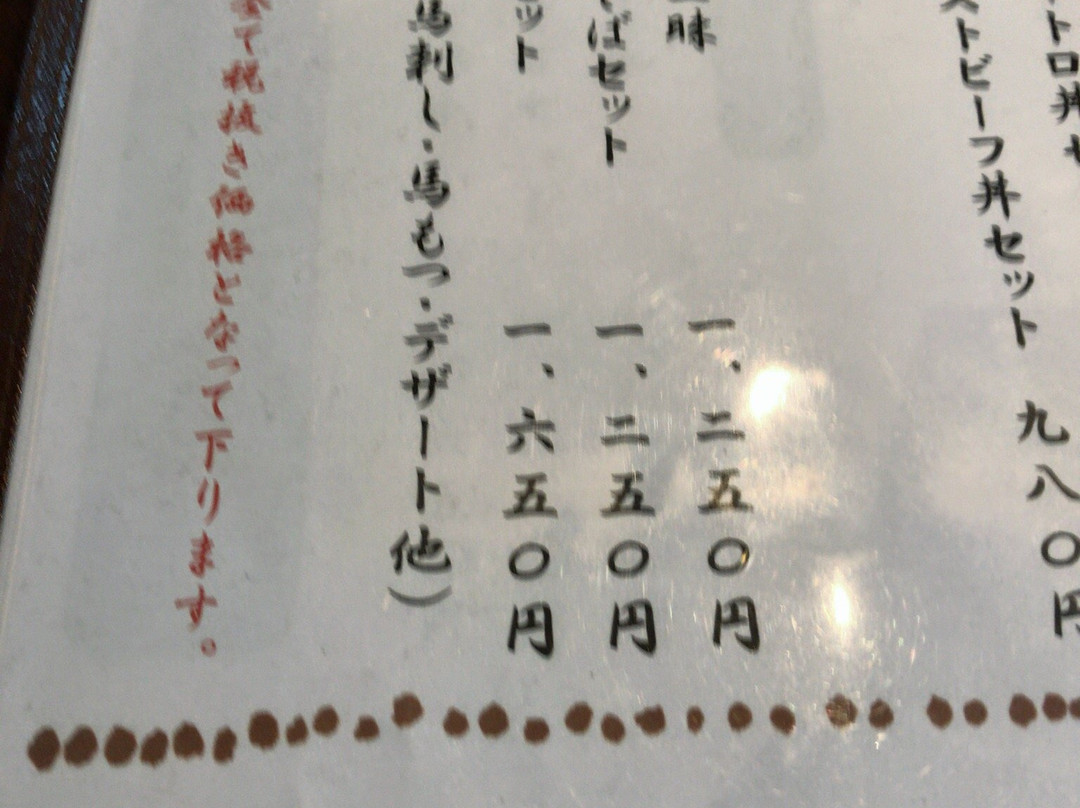 トロ丼セ
ストビーフ丼セット 九八〇円
三昧 一、二五〇円
ばセット 一、二五〇円
ット 一、六五〇円
馬刺し・馬もつ・デザート他）
全て税抜き価格となって下ります。